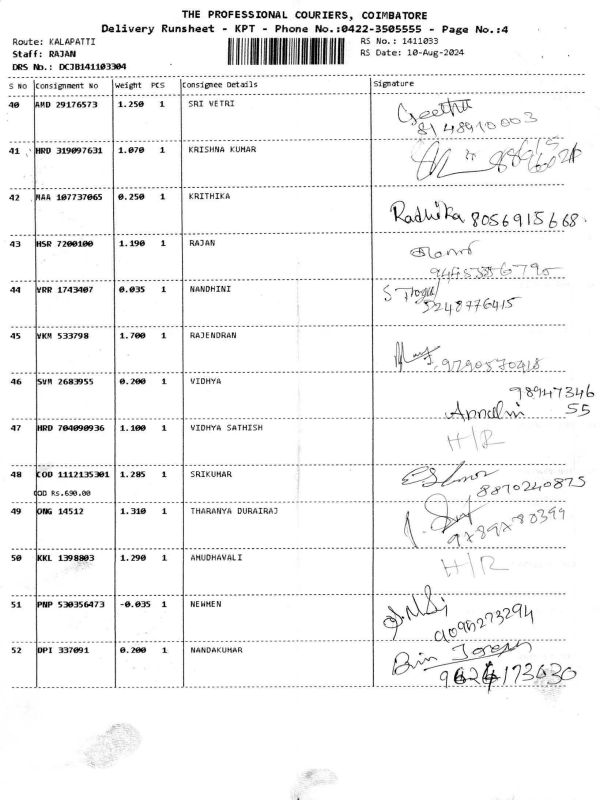 THE PROFESSIONAL COURIERS, COIMBATORE
Delivery Runsheet - KPT - Phone No.:0422-3505555 - Page No.:4
Route: KALAPATTI
RS No.: 1411033
Staff: RAJAN
RS Date: 10-Aug-2024
DRS No.: DCJB141103304
S No Consignment No Weight PCS Consignee Details Signature
40 AMD 29176573 1.250 1 SRI VETRI Geetha
8148910003
41 HRD 319097631 1.070 1 KRISHNA KUMAR
42 MAA 107737065 0.250 1 KRITHIKA
Radhika 8056915668.
43 HSR 7200100 1.190 1 RAJAN
44 VRR 1743407 0.035 1 NANDHINI
9248776415
45 VKM 533798 1.700 1 RAJENDRAN
9790570418
46 SVM 2683955 0.200 1 VIDHYA
98947346
55
47 HRD 704090936 1.100 1 VIDHYA SATHISH H/R
48 COD 1112135301 1.285 1 SRIKUMAR
8870240875
COD Rs.690.00
49 ONG 14512 1.310 1 THARANYA DURAIRAJ
9789780399
50 KKL 1398803 1.290 1 AMUDHAVALI H/R
51 PNP 530356473 -0.035 1 NEWMEN
9095273294
52 DPI 337091 0.200 1 NANDAKUMAR